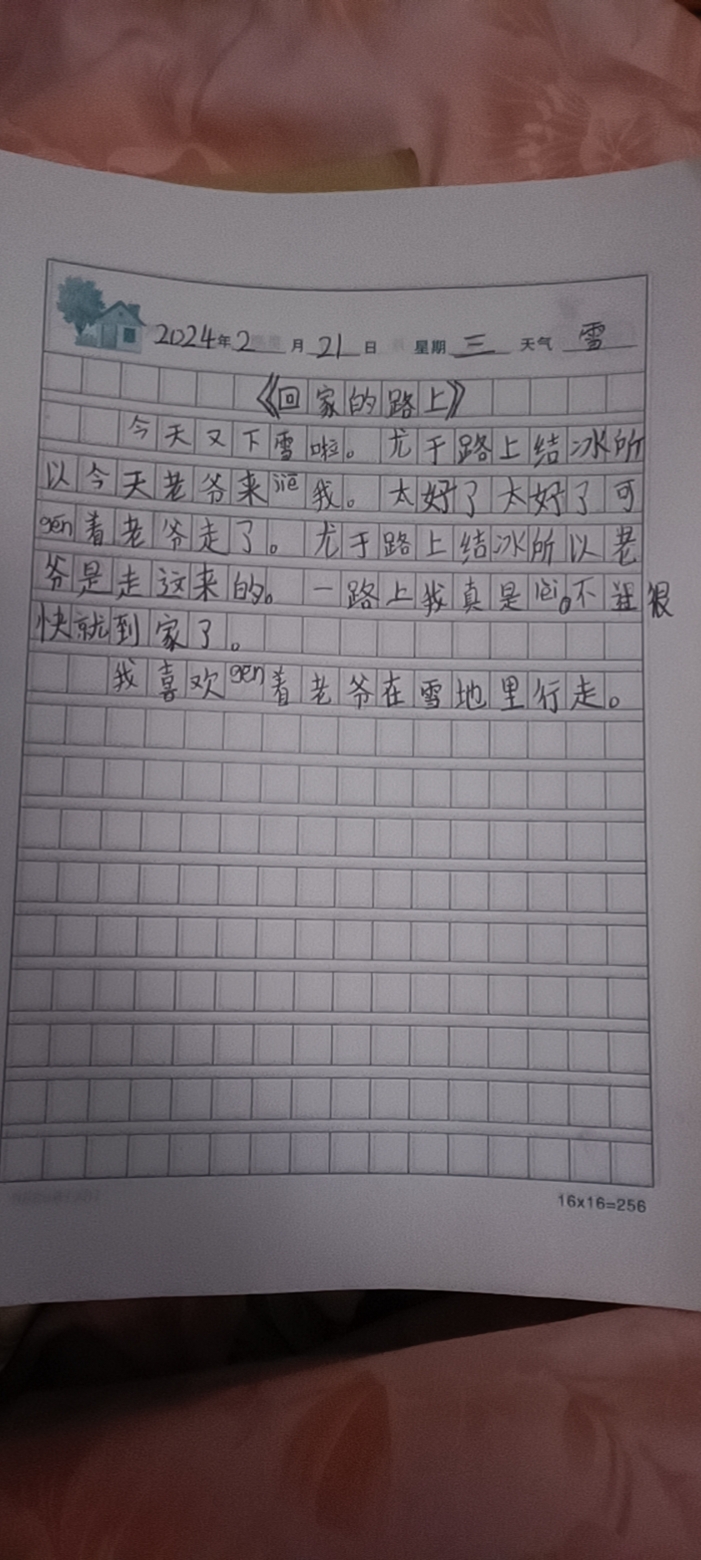 2024年2月21日 星期三 天气 雪
《回家的路上》
今天又下雪啦。尤于路上结冰所
以今天老爷来jiē我。太好了太好了可
gēn着老爷走了。尤于路上结冰所以老
爷是走这来的。一路上我真是。不 很
快就到家了。
我喜欢gēn着老爷在雪地里行走。
16x16=256